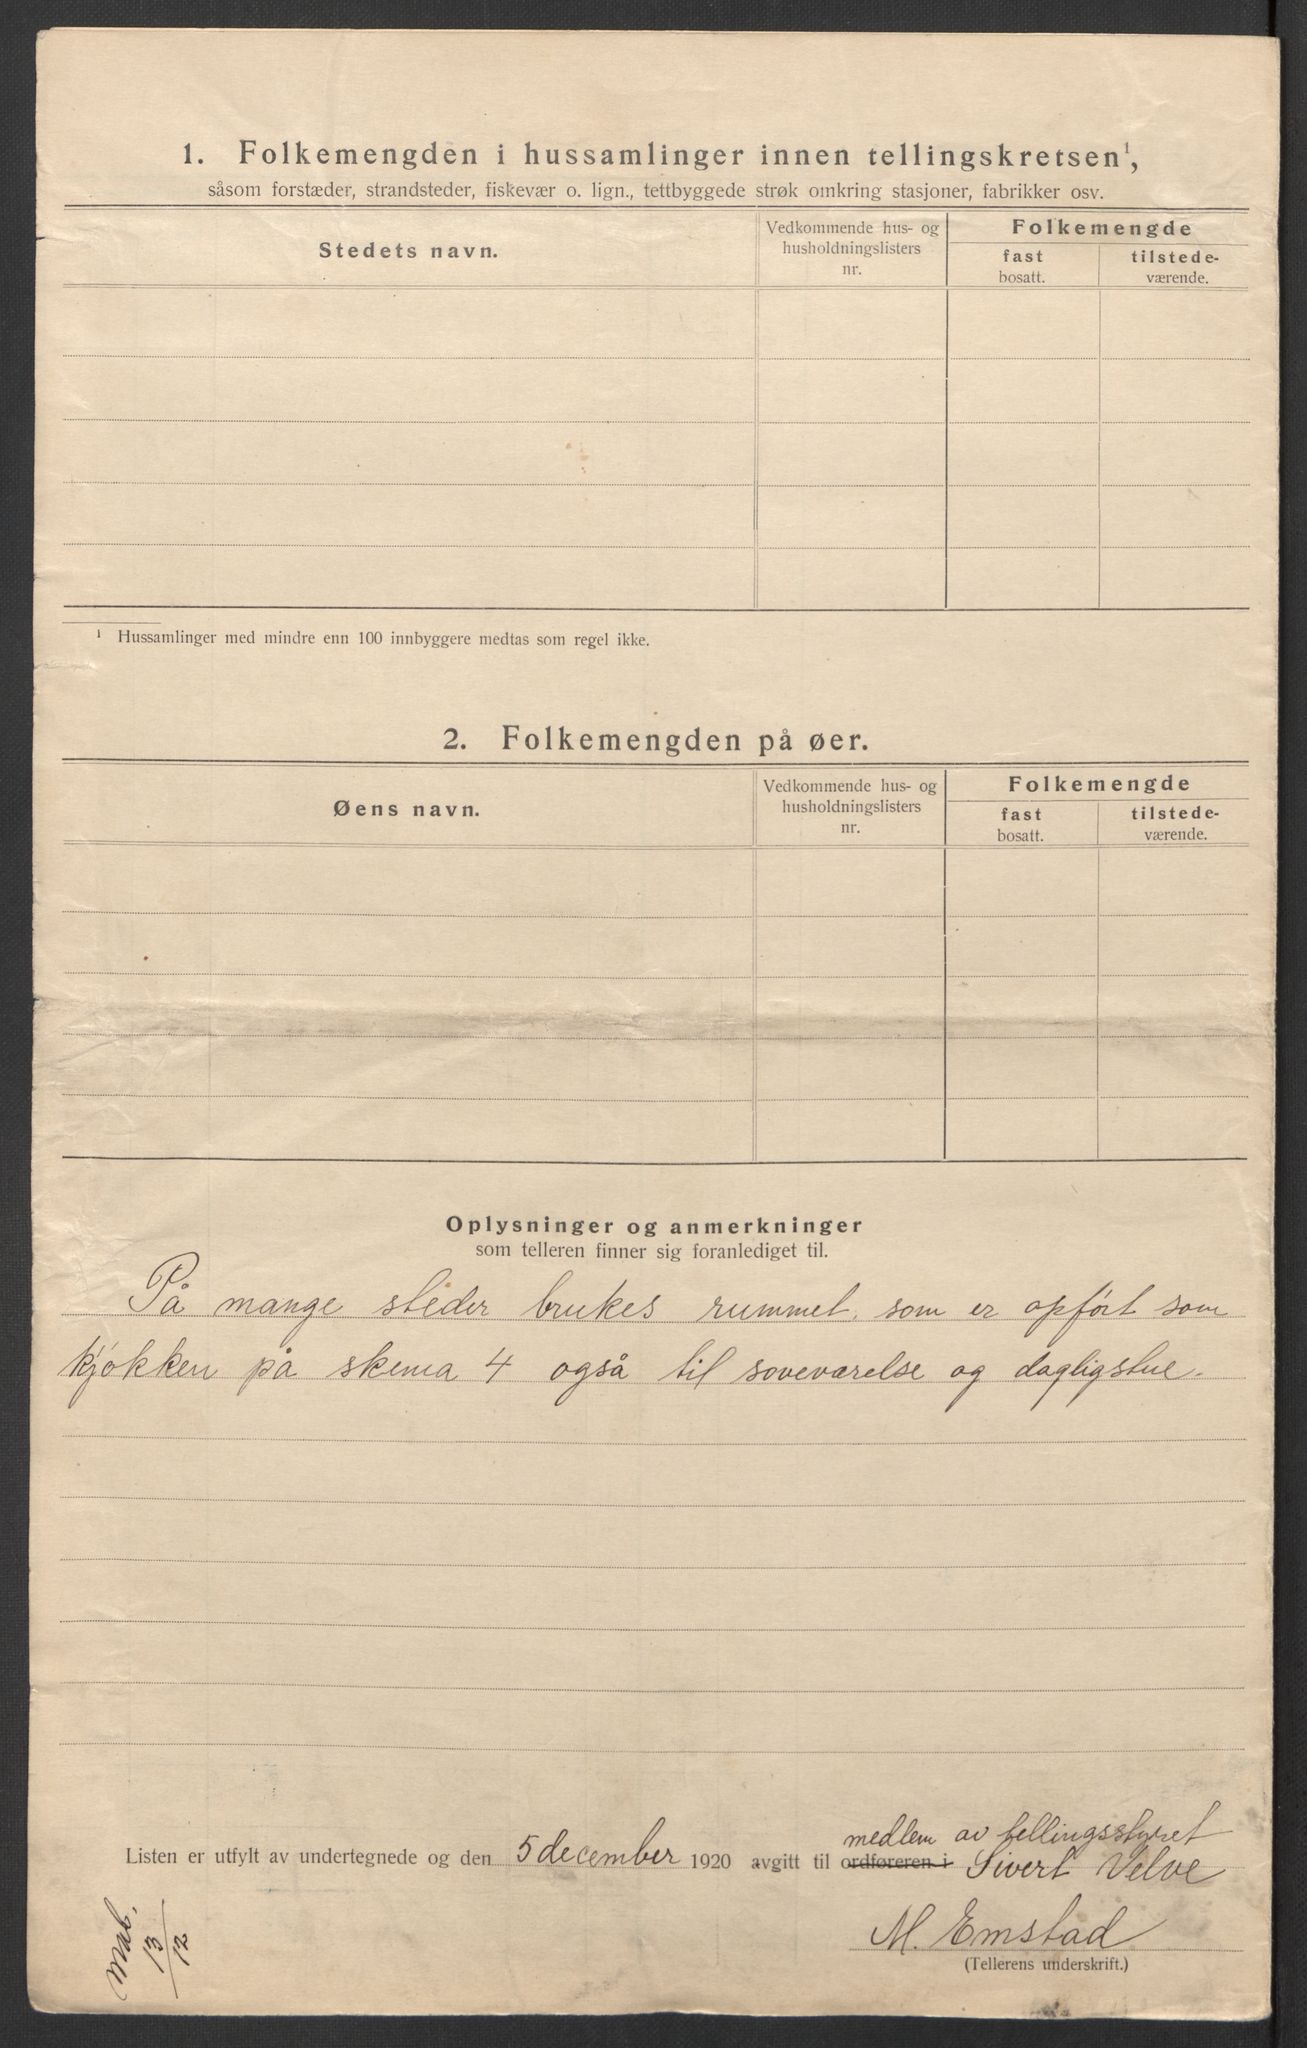 1. Folkemengden i hussamlinger innen tellingskretsen¹,
såsom forstæder, strandsteder, fiskevær o. lign., tettbyggede strøk omkring stasjoner, fabrikker osv.
Stedets navn.
Vedkommende hus- og
husholdningslisters
nr.
Folkemengde
fast
bosatt.
tilstede-
værende.
¹ Hussamlinger med mindre enn 100 innbyggere medtas som regel ikke.
2. Folkemengden på øer.
Øens navn.
Vedkommende hus- og
husholdningslisters
nr.
Folkemengde
fast
bosatt.
tilstede-
værende.
Oplysninger og anmerkninger
som telleren finner sig foranlediget til.
På mange steder brukes rummet, som er opført som
kjøkken på skema 4 også til soveværelse og dagligstue.
medlem av tellingsstyret
Listen er utfylt av undertegnede og den 5 december 1920 avgitt til ordføreren i Sivert Velve
M. Emstad
(Tellerens underskrift.)
Mab.
13/12